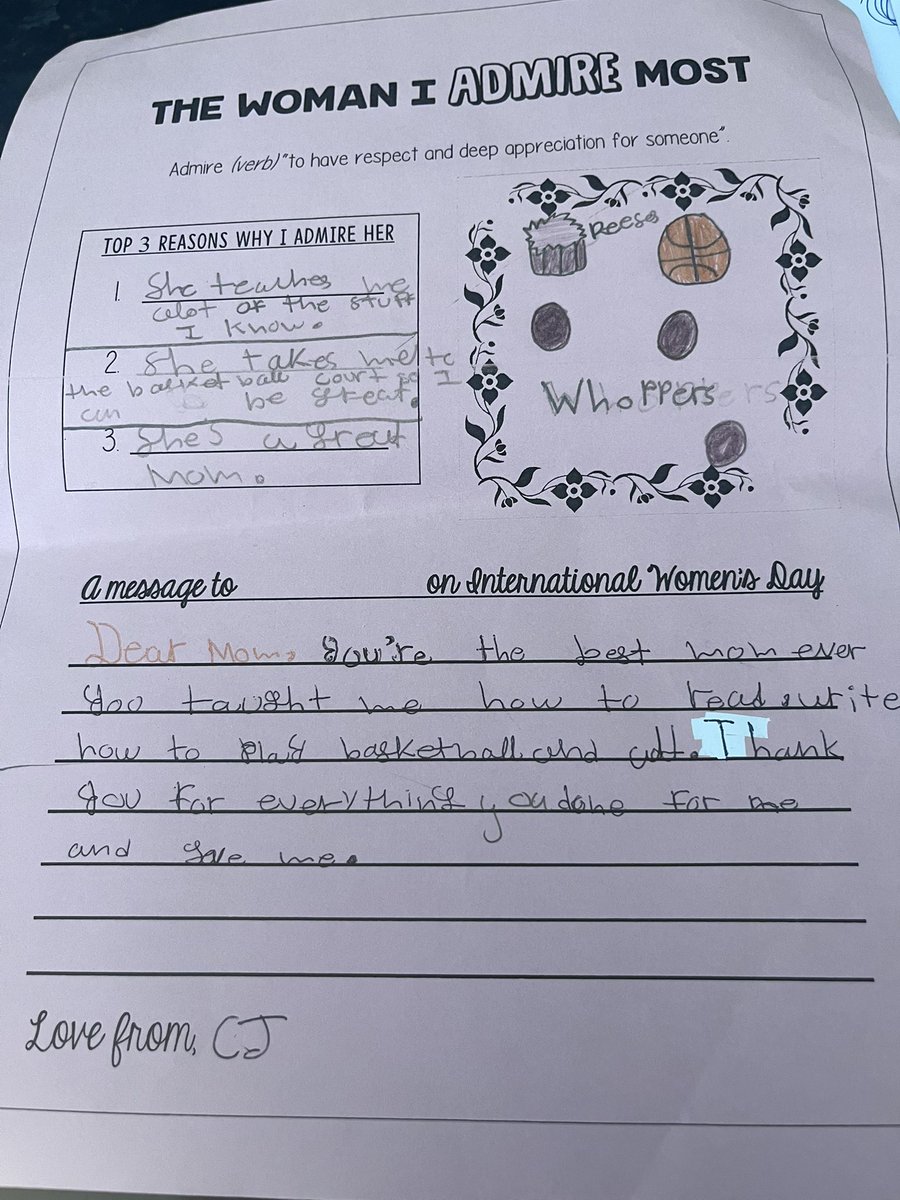 THE WOMAN I ADMIRE MOST
Admire (verb) "to have respect and deep appreciation for someone".
TOP 3 REASONS WHY I ADMIRE HER
1. She teaches me
alot of the stuff
I know.
2. She takes me to
the basket ball court so I
can be great.
3. She's a great
Mom.
Reeses
Whoppers
A message to on International Women's Day
Dear Mom, You're the best mom ever
you taught me how to read, write
how to play basketball, and Thank
you for everything you done for me
and gave me.
Love from, CJ